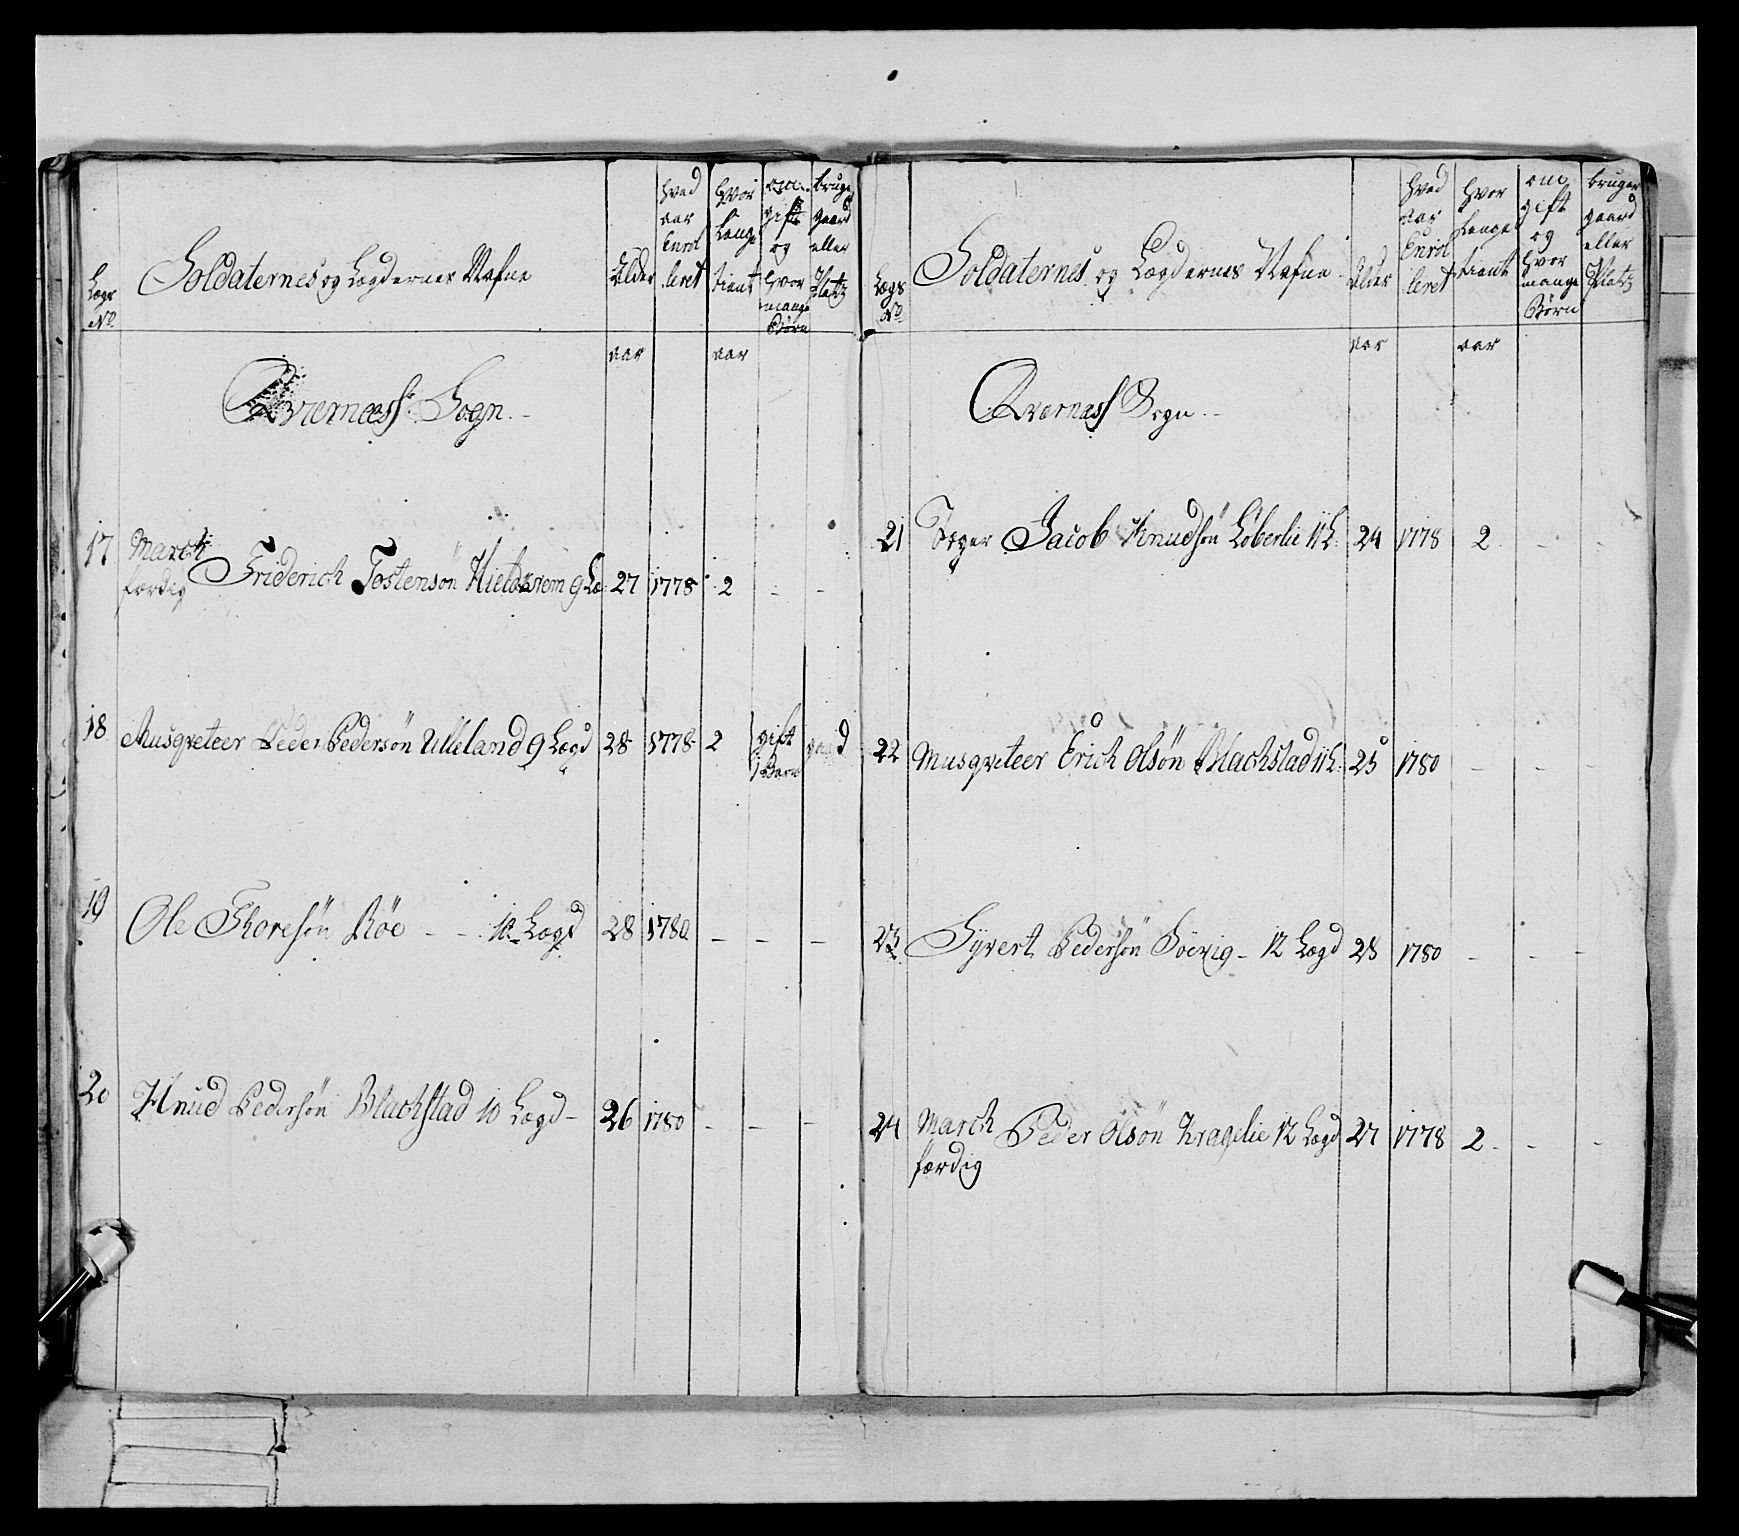 Lægs No
Soldaternes og Lægdernes Nafne
Alder
hvad aar Enrolleret
hvor længe tient
om gift og hvor mange Børn
bruger gaard eller Platz
aar
aar
Qvernæss Sogn
17 March færdig Friderich Tostensøn 9 Læ 27 1778 2 - -
18 Musqveteer Peder Pedersøn Ulleland 9 Lægd 28 1778 2 gift 1 Barn gaard
19 Ole Thoresøn Røe - - 10 Lægd 28 1780 - - -
20 Knud Pedersøn Blachstad 10 Lægd - 26 1780 - - -
Lægs No
Soldaternes og Lægdernes Nafne
Alder
hvad aar Enrolleret
hvor længe tient
om gift og hvor mange Børn
bruger gaard eller Platz
aar
aar
Qvernæss Sogn
21 Jacob Knudsøn Løberlie 11 L: 24 1778 2 - -
22 Musqveteer Erich Olsøn Blachstad 11 L: 25 1780 - - -
23 Syvert Pedersøn - 12 Lægd 28 1780 - - -
24 March færdig Peder Olsøn Kragelie 12 Lægd 27 1778 2 - -